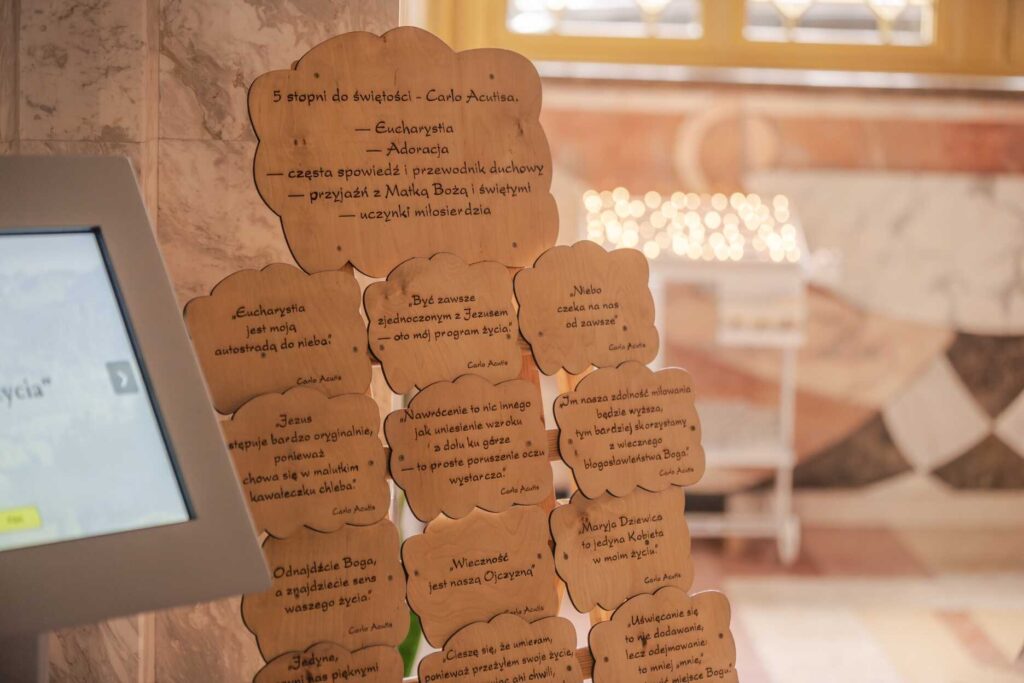 5 stopni do świętości - Carlo Acutisa.
— Eucharystia
— Adoracja
— częsta spowiedź i przewodnik duchowy
— przyjaźń z Matką Bożą i świętymi
— uczynki miłosierdzia
„Eucharystia
jest moją
autostradą do nieba."
Carlo Acutis
„Być zawsze
zjednoczonym z Jezusem
— oto mój program życia."
Carlo Acutis
„Niebo
czeka na nas
od zawsze"
Carlo Acutis
„Jezus
stępuje bardzo oryginalnie,
ponieważ
chowa się w malutkim
kawałeczku chleba."
Carlo Acutis
„Nawrócenie to nic innego
jak uniesienie wzroku
z dołu ku górze
— to proste poruszenie oczu
wystarcza."
Carlo Acutis
„Im nasza zdolność miłowania
będzie wyższa,
tym bardziej skorzystamy
z wiecznego
błogosławieństwa Boga."
Carlo Acutis
Odnajdźcie Boga,
a znajdziecie sens
waszego życia."
Carlo Acutis
„Wieczność
jest naszą Ojczyzną"
Carlo Acutis
„Maryja Dziewica
to jedyna Kobieta
w moim życiu."
Carlo Acutis
„Jedyne,
nas pięknymi
„Cieszę się, że umieram,
ponieważ przeżyłem swoje życie,
ani chwili,
„Uświęcanie się
to nie dodawanie,
lecz odejmowanie:
to mniej „mnie,"
miejsce Bogu
życia"